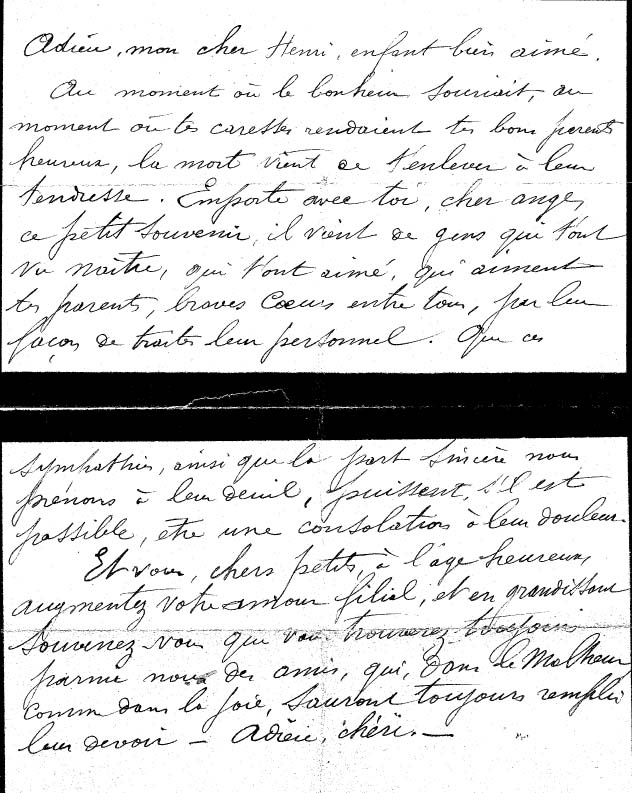 Adieu, mon cher Henri, enfant bien aimé.
Au moment où le bonheur souriait, au
moment où tes caresses rendaient tes bons parents
heureux, la mort vient de t'enlever à leur
tendresse. Emporte avec toi, cher ange,
ce petit souvenir, il vient de gens qui t'ont
vu naître, qui t'ont aimé, qui aiment
tes parents, braves Cœurs entre tous, par leur
façon de traiter leur personnel. Que ces
sympathies, ainsi que la part sincère nous
prénons à leur deuil, puissent, s'il est
possible, être une consolation à leur douleur.
Et vous, chers petits, à l'âge heureux,
augmentez votre amour filial, et en grandissant
souvenez vous que vous trouverez toujours
parmi nous des amis, qui, dans le Malheur
comme dans la joie, sauront toujours remplir
leur devoir — Adieu, chéri. —